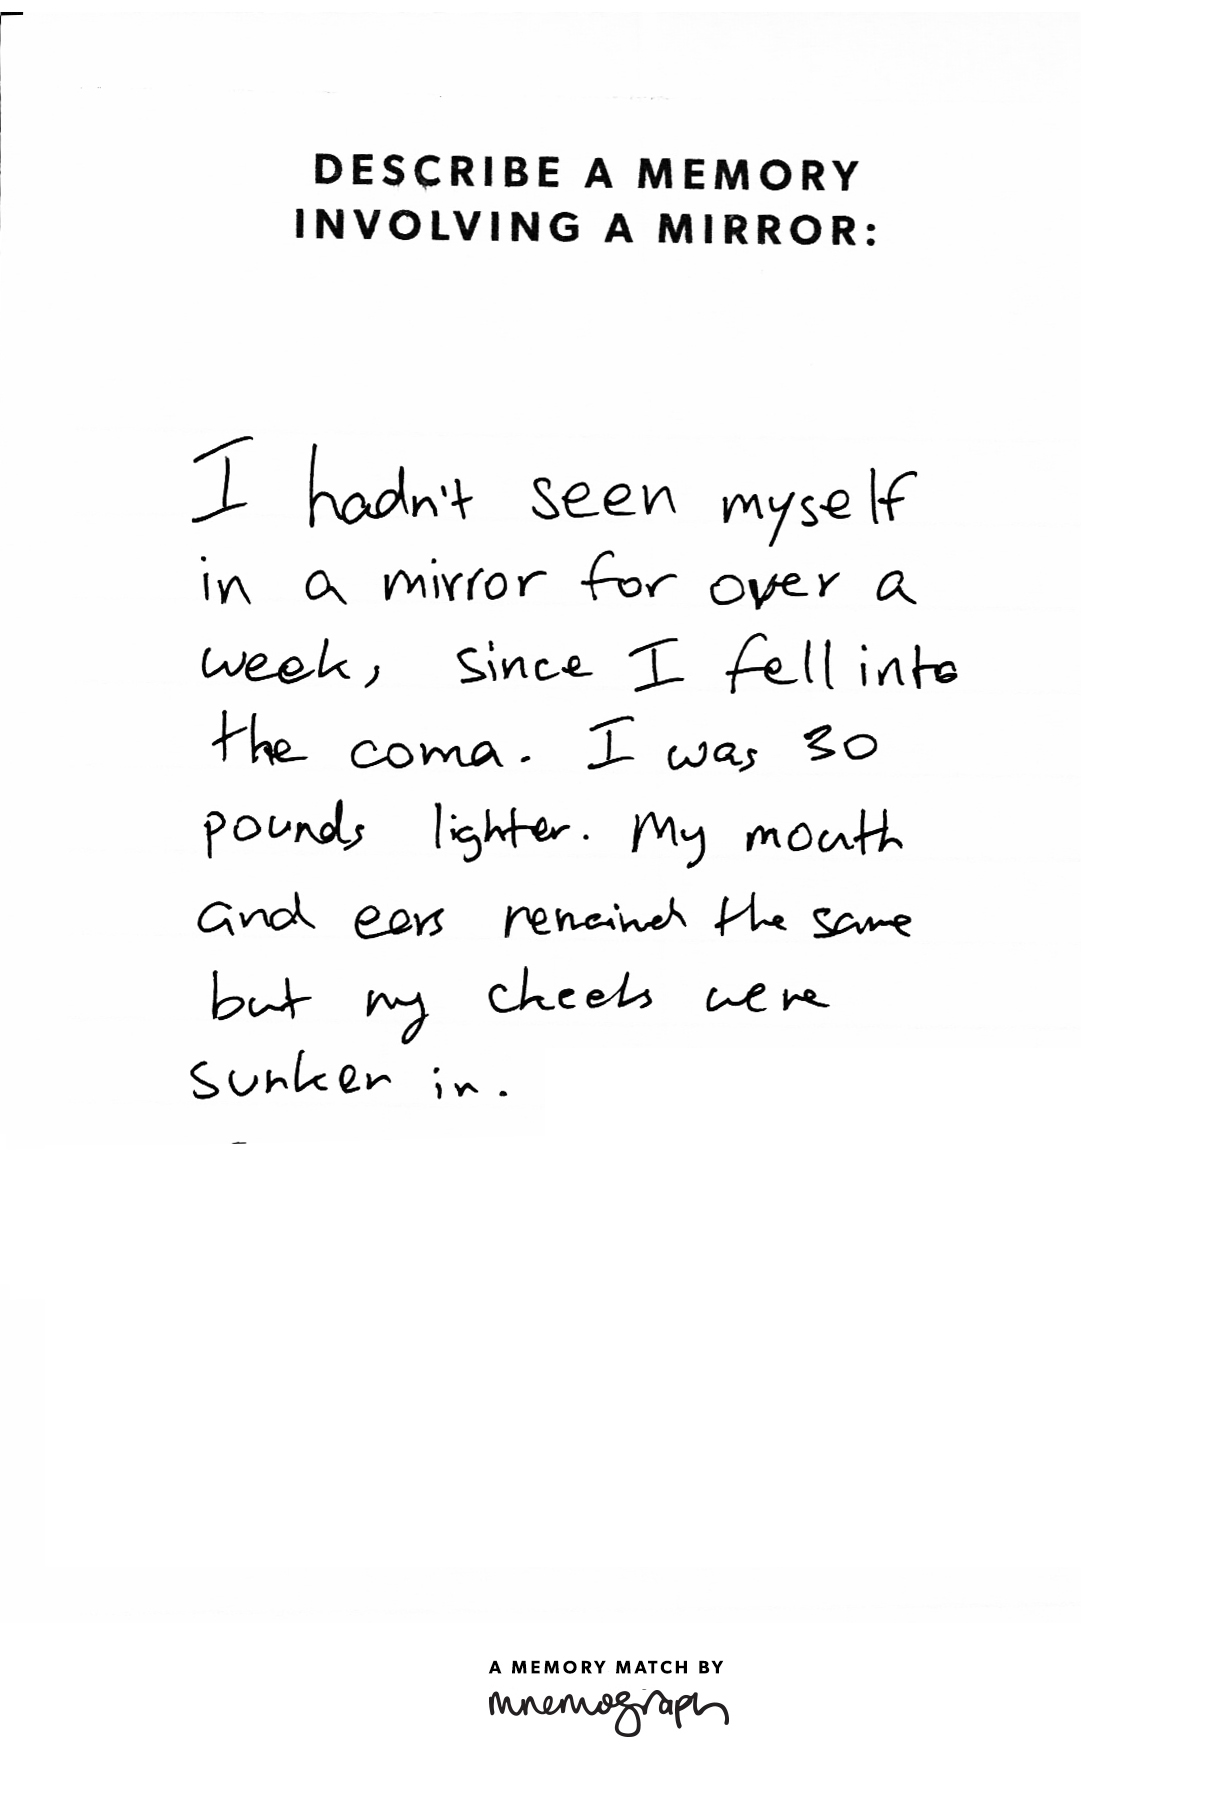 DESCRIBE A MEMORY
INVOLVING A MIRROR:
I hadn't seen myself
in a mirror for over a
week, since I fell into
the coma. I was 30
pounds lighter. My mouth
and ears remained the same
but my cheeks were
sunken in.
A MEMORY MATCH BY
mnemograph